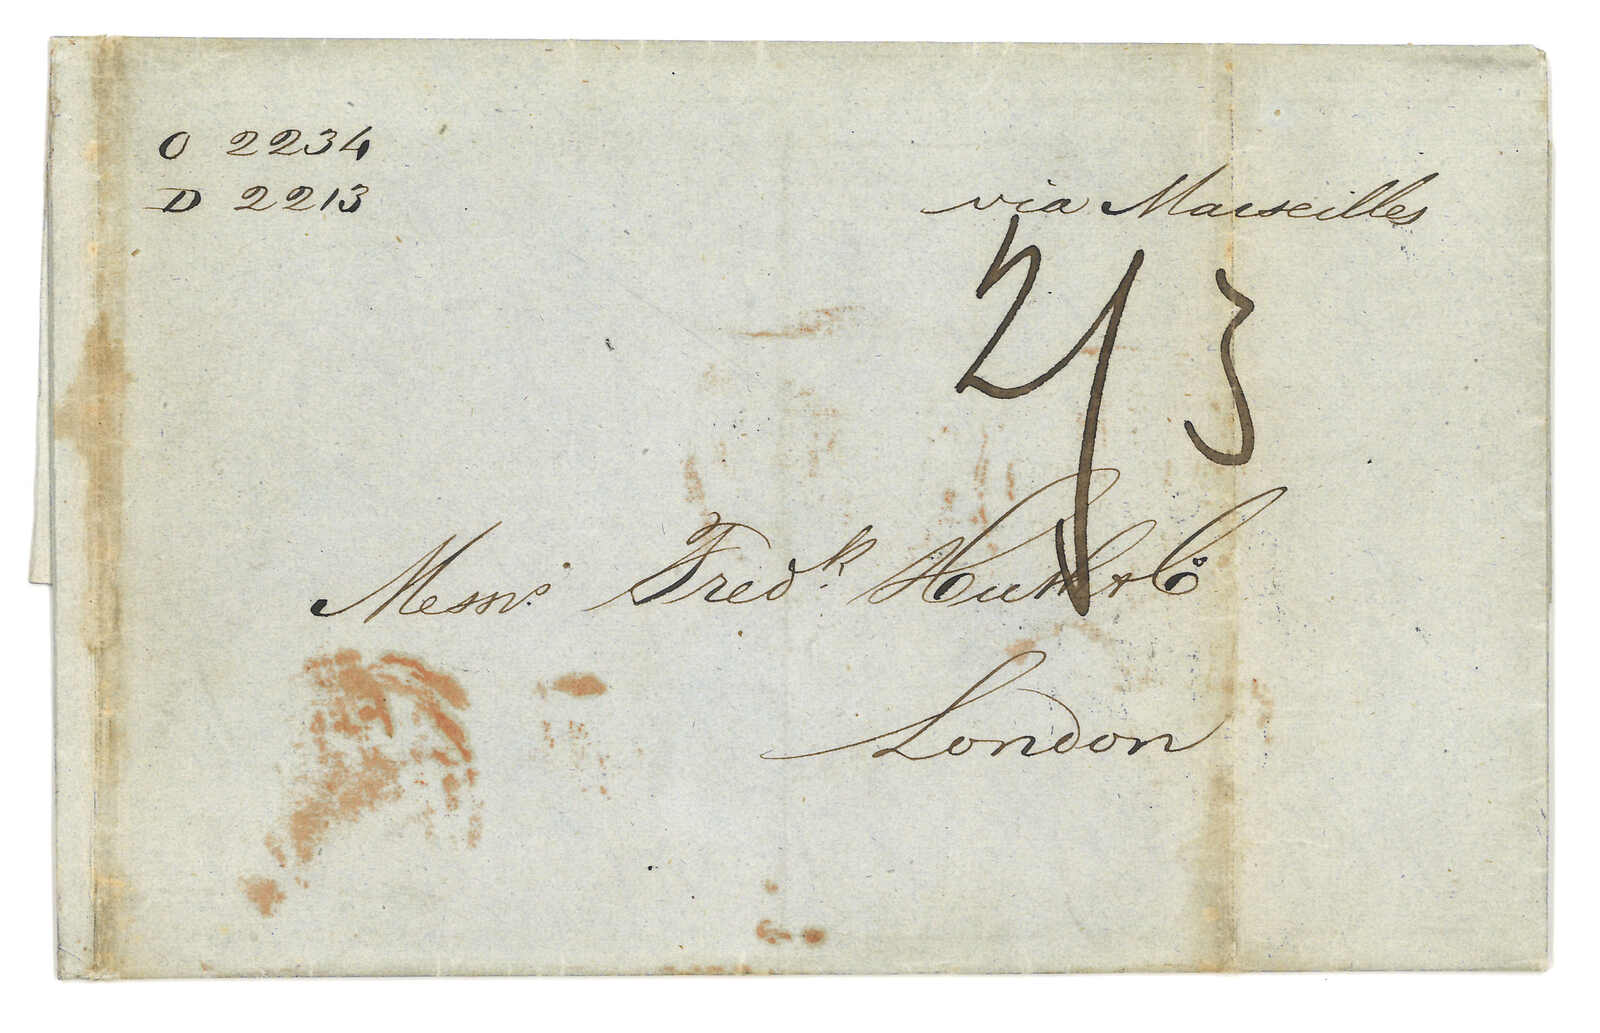 O 2234
D 2213
via Marseilles
2/3
Messrs. Fredk. Huth & Co
London